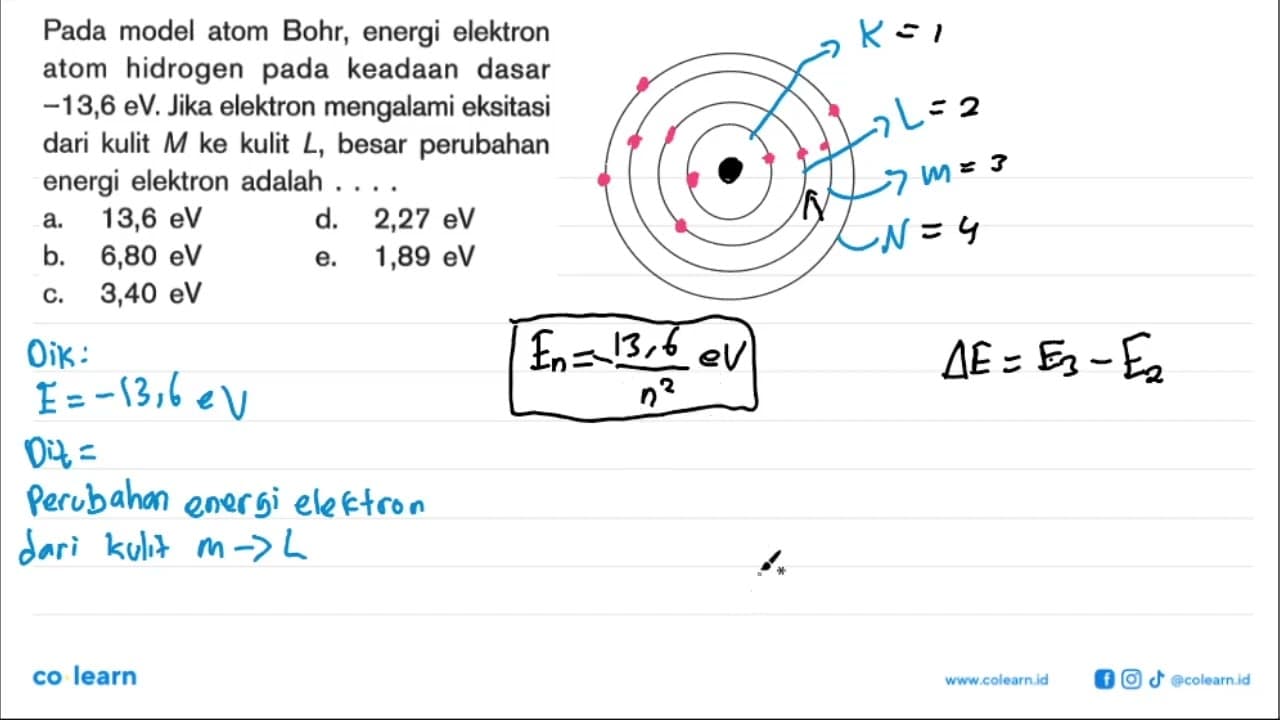 Pada model atom Bohr, energi elektron
atom hidrogen pada keadaan dasar
−13,6 eV. Jika elektron mengalami eksitasi
dari kulit M ke kulit L, besar perubahan
energi elektron adalah . . . .
a. 13,6 eV d. 2,27 eV
b. 6,80 eV e. 1,89 eV
c. 3,40 eV
K = 1
L = 2
m = 3
N = 4
Dik:
E = -13,6 eV
Dit =
Perubahan energi elektron
dari kulit m → L
En = -13,6/n² eV
ΔE = E3 - E2
co learn
www.colearn.id @colearn.id